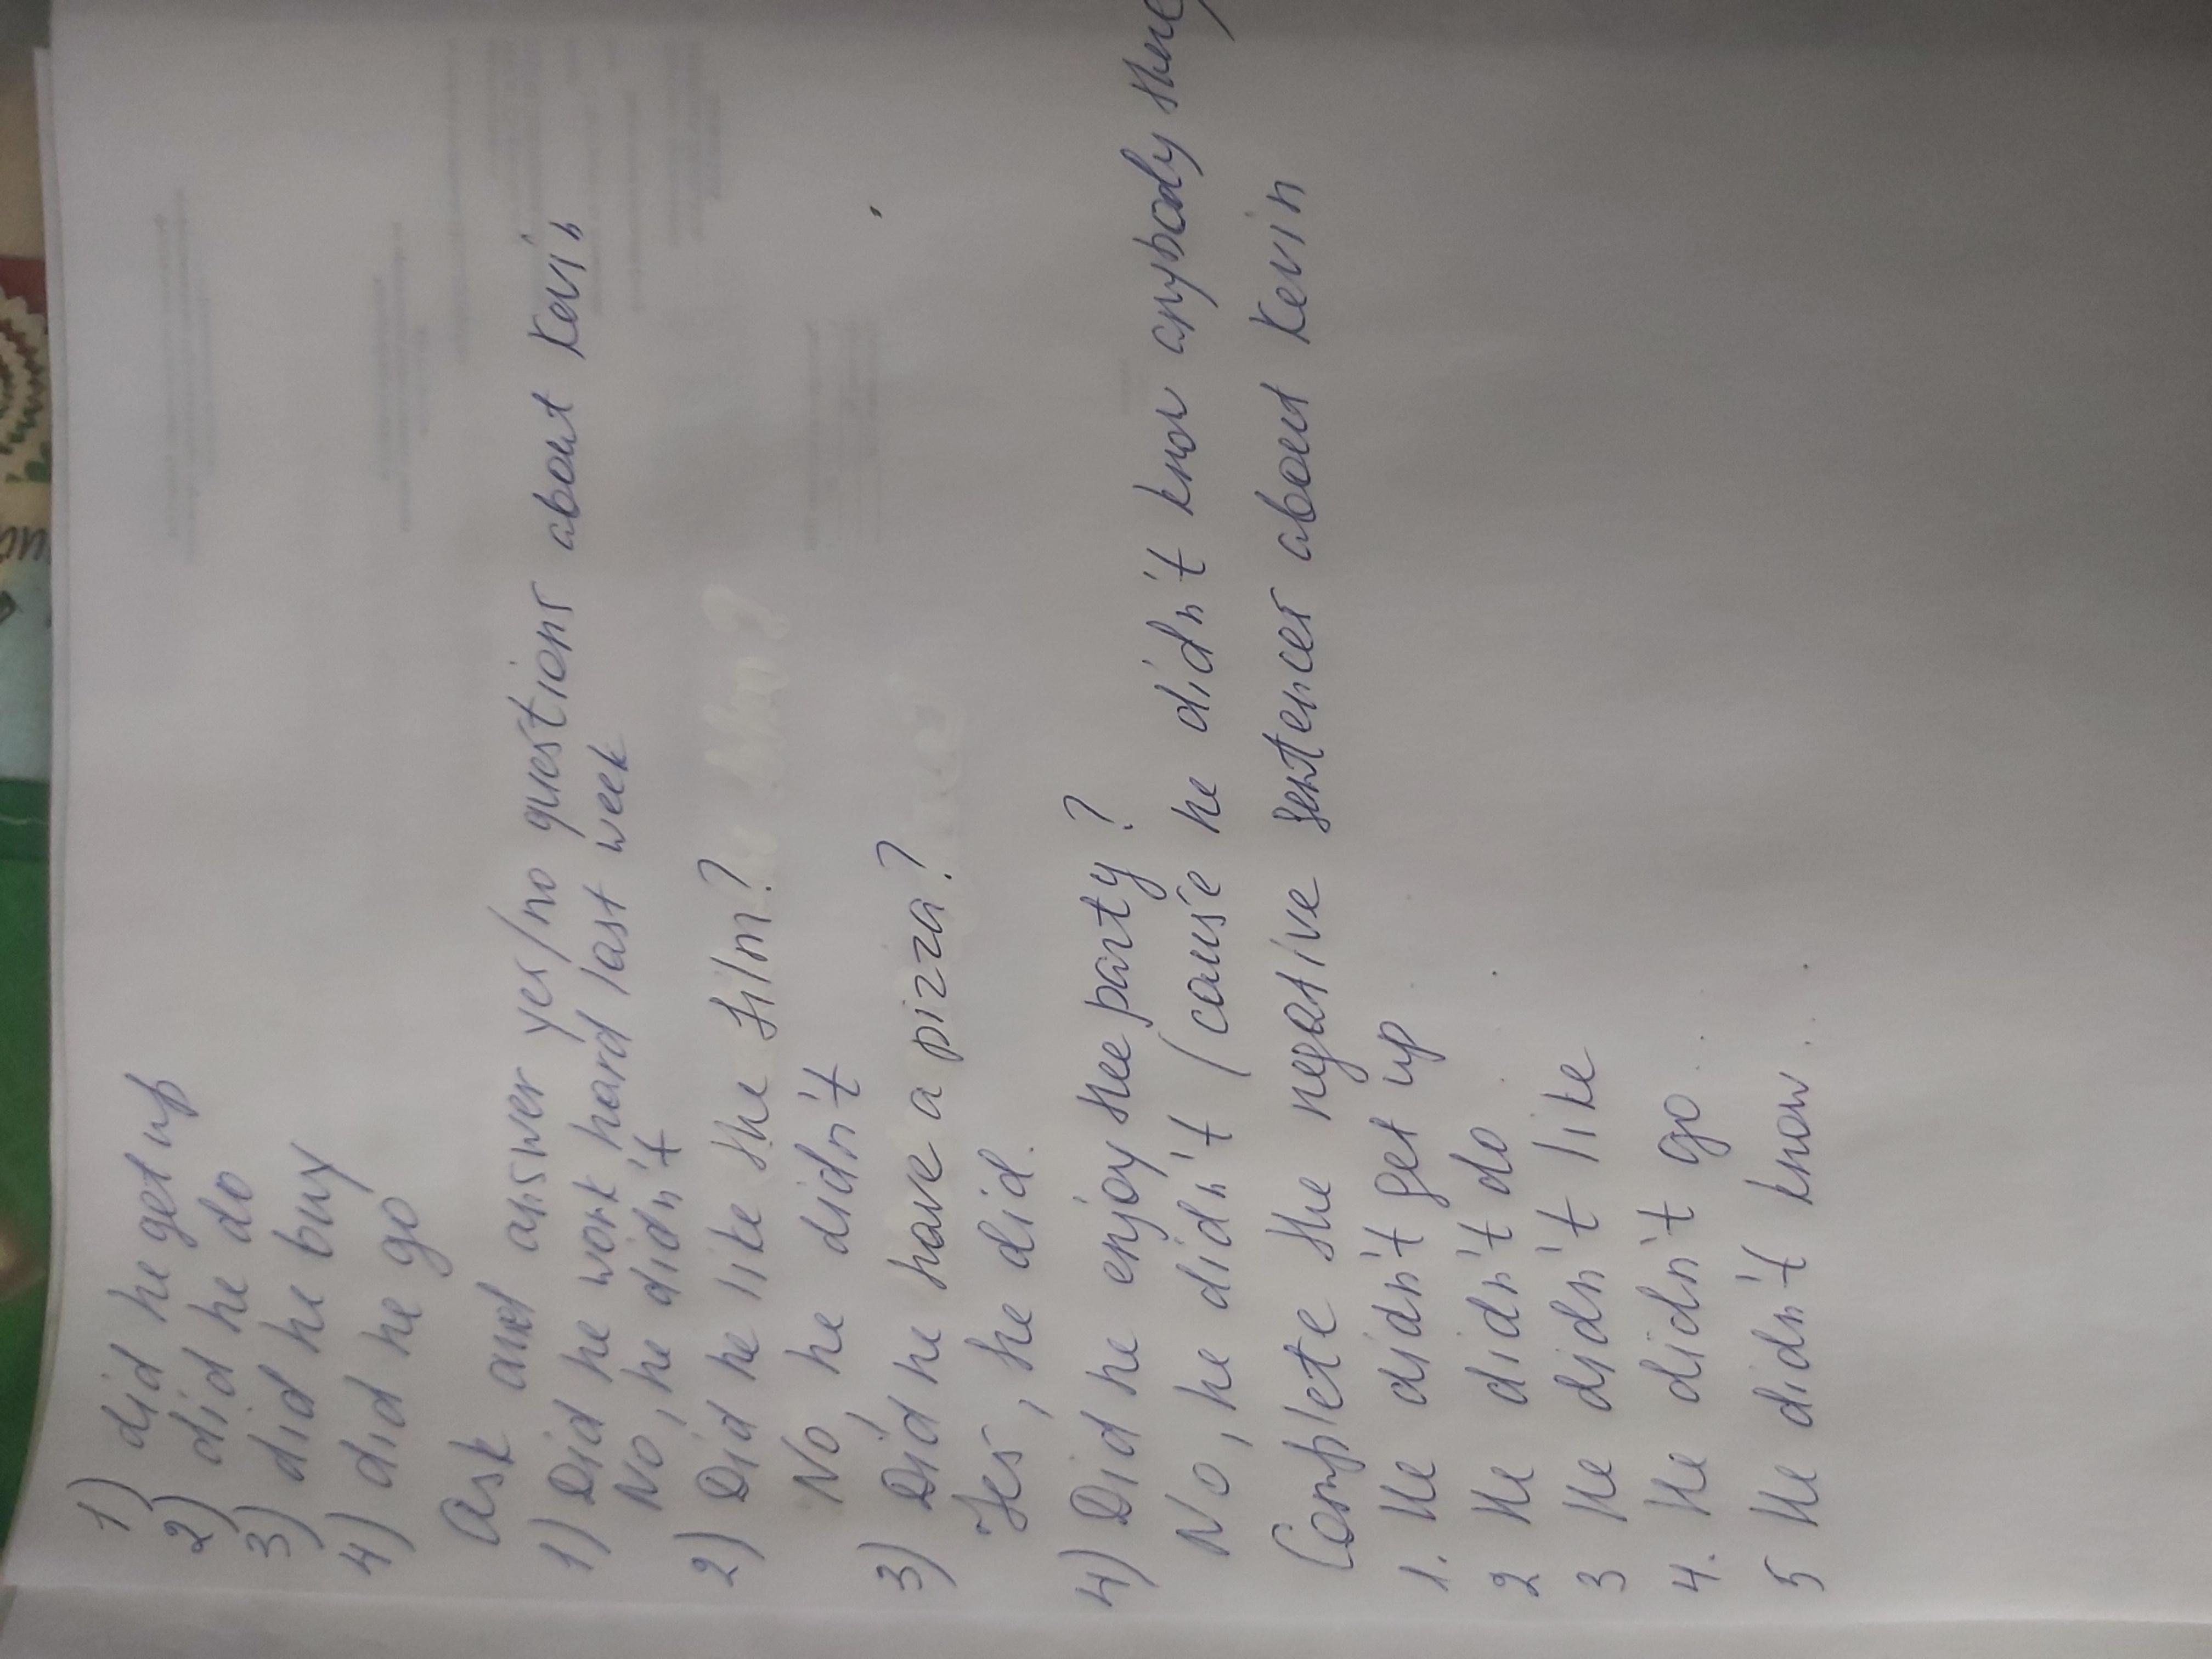 1) did he get up
2) did he do
3) did he buy
4) did he go
Ask and answer yes/no questions about Kevin
1) Did he work hard last week
No, he didn't
2) Did he like the film?
No, he didn't
3) Did he have a pizza?
Yes, he did.
4) Did he enjoy the party?
No, he didn't (cause he didn't know anybody there)
Complete the negative sentences about Kevin
1. He didn't get up
2 He didn't do
3 He didn't like
4. He didn't go
5 He didn't know